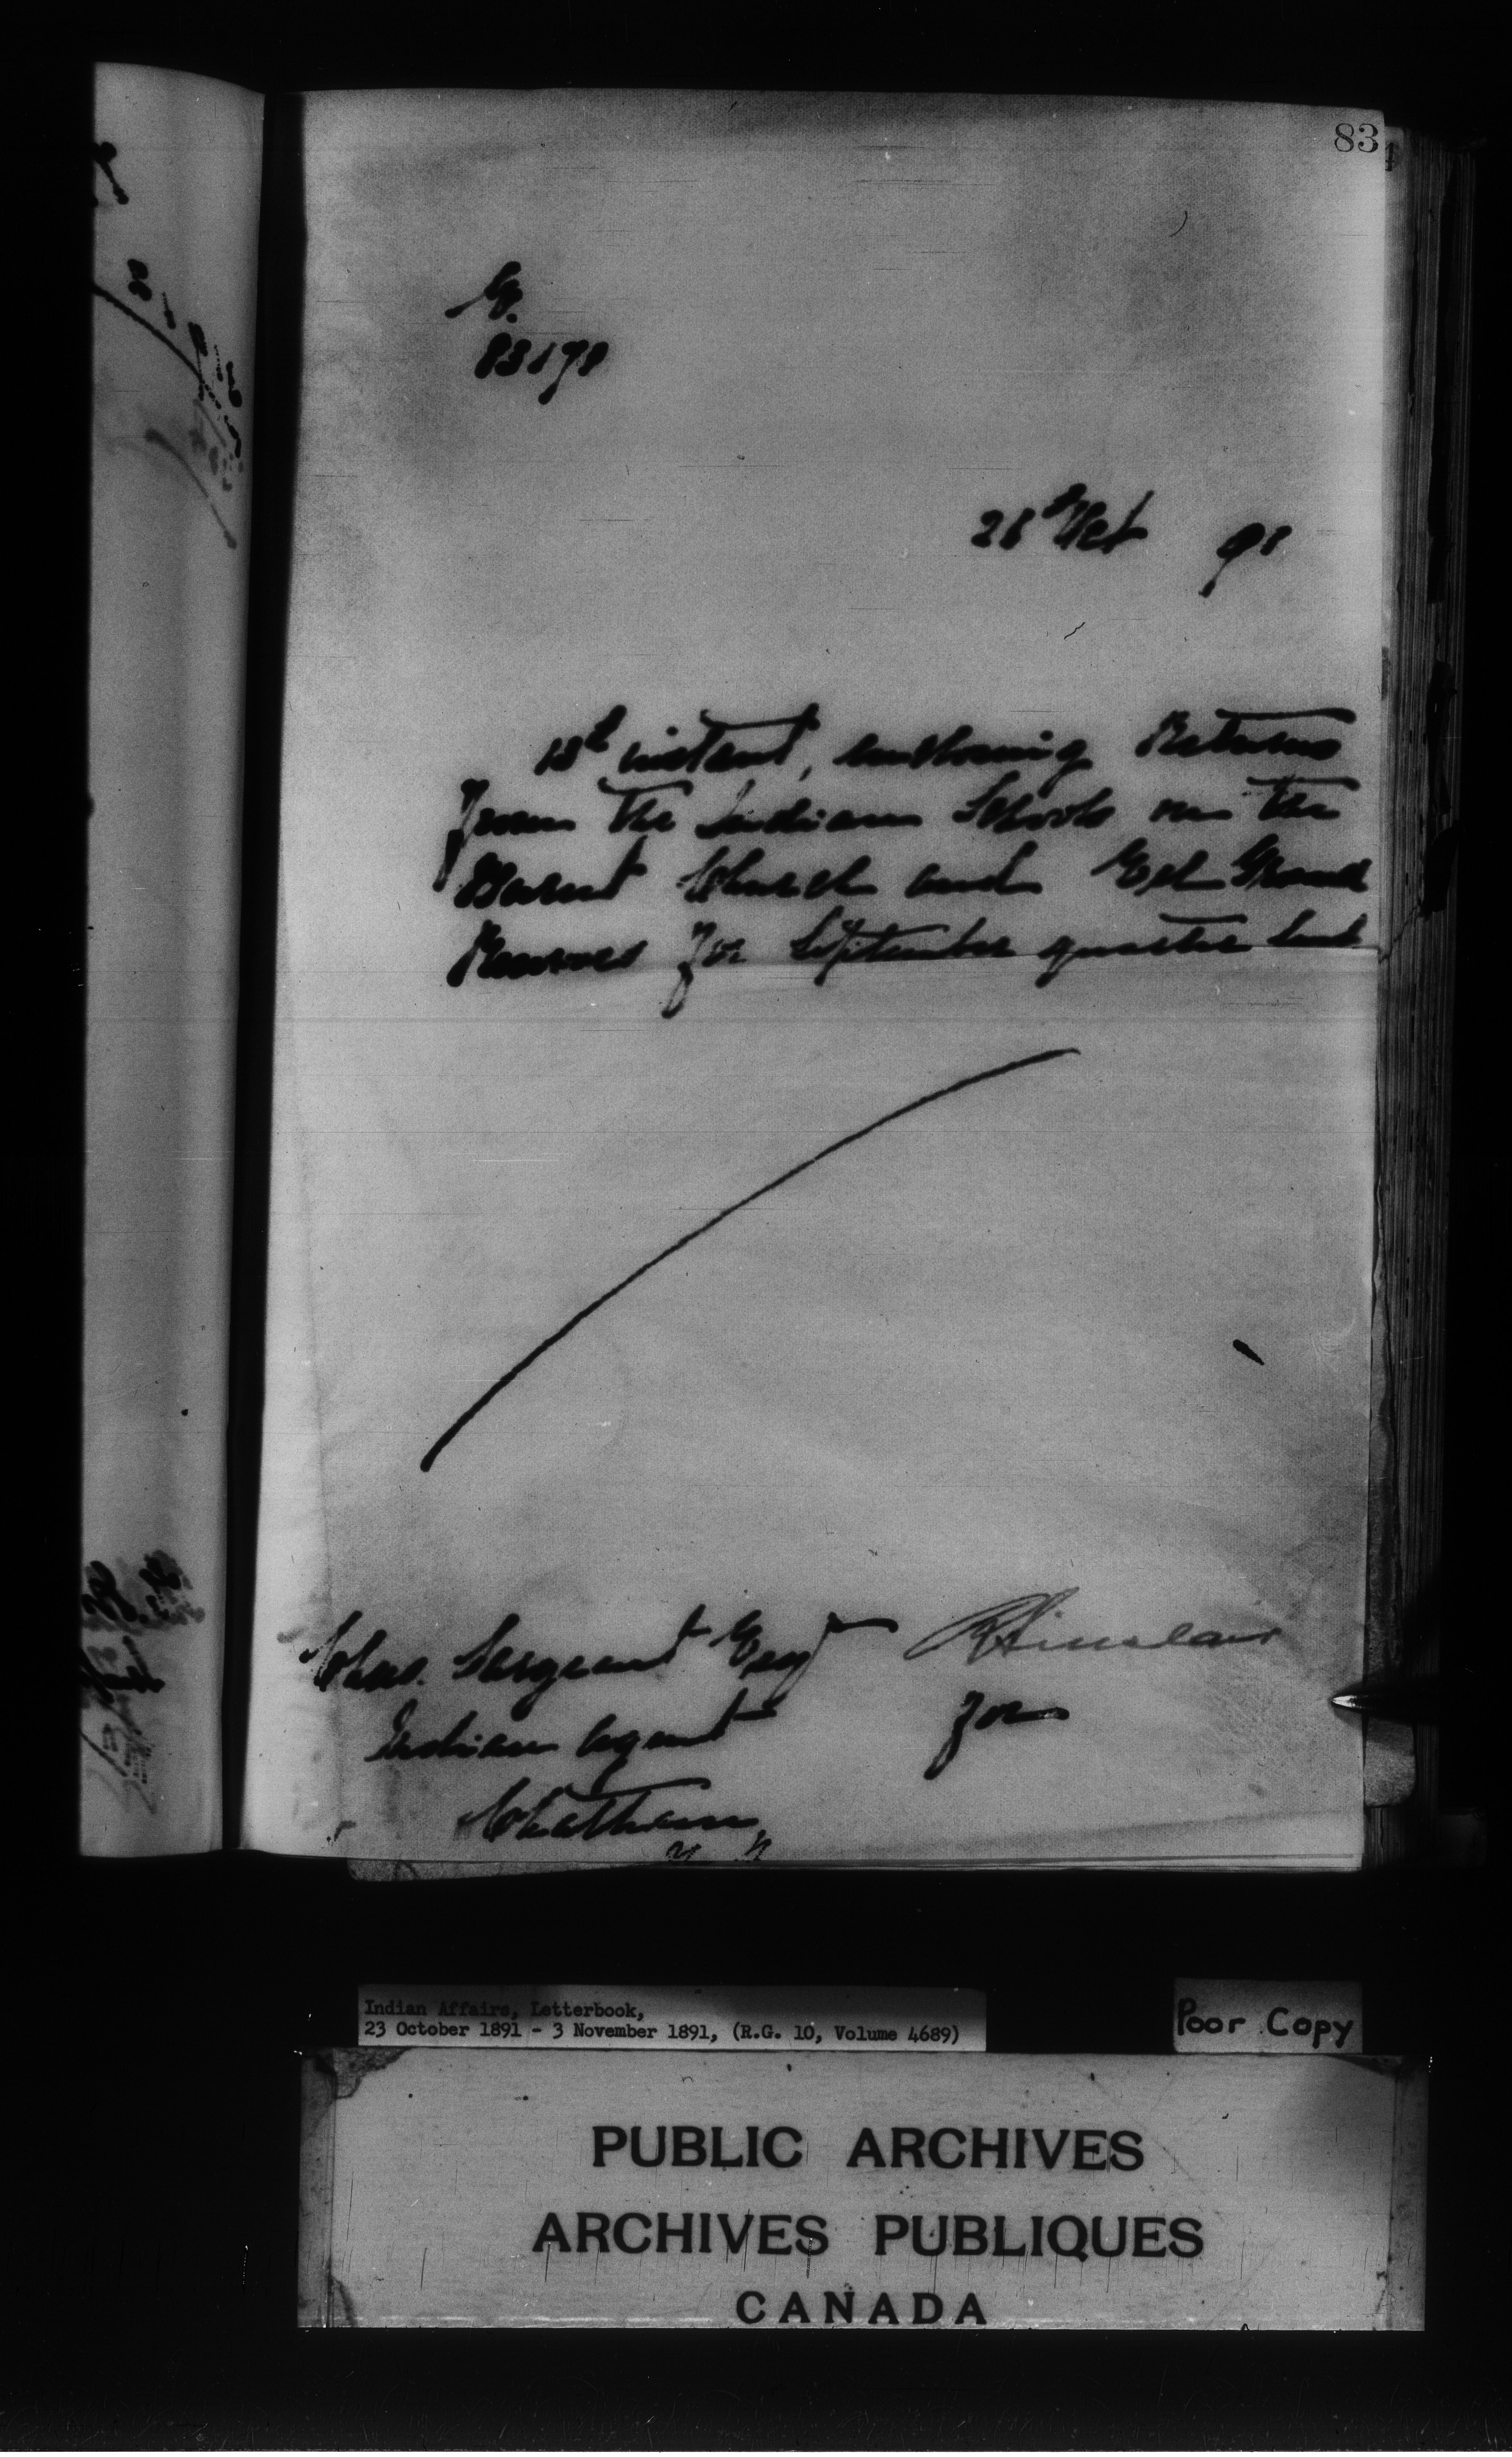 83
83178
28th Oct 91
13th instant, enclosing Returns
from the Indian Schools on the
Burnt Church and Eel Ground
Reserves for September quarter last
Chas. Sargeant Esqr
R Sinclair
Indian Agent
for
Chatham,
N. B.
Indian Affairs, Letterbook,
23 October 1891 - 3 November 1891, (R.G. 10, Volume 4689)
Poor Copy
PUBLIC ARCHIVES
ARCHIVES PUBLIQUES
CANADA